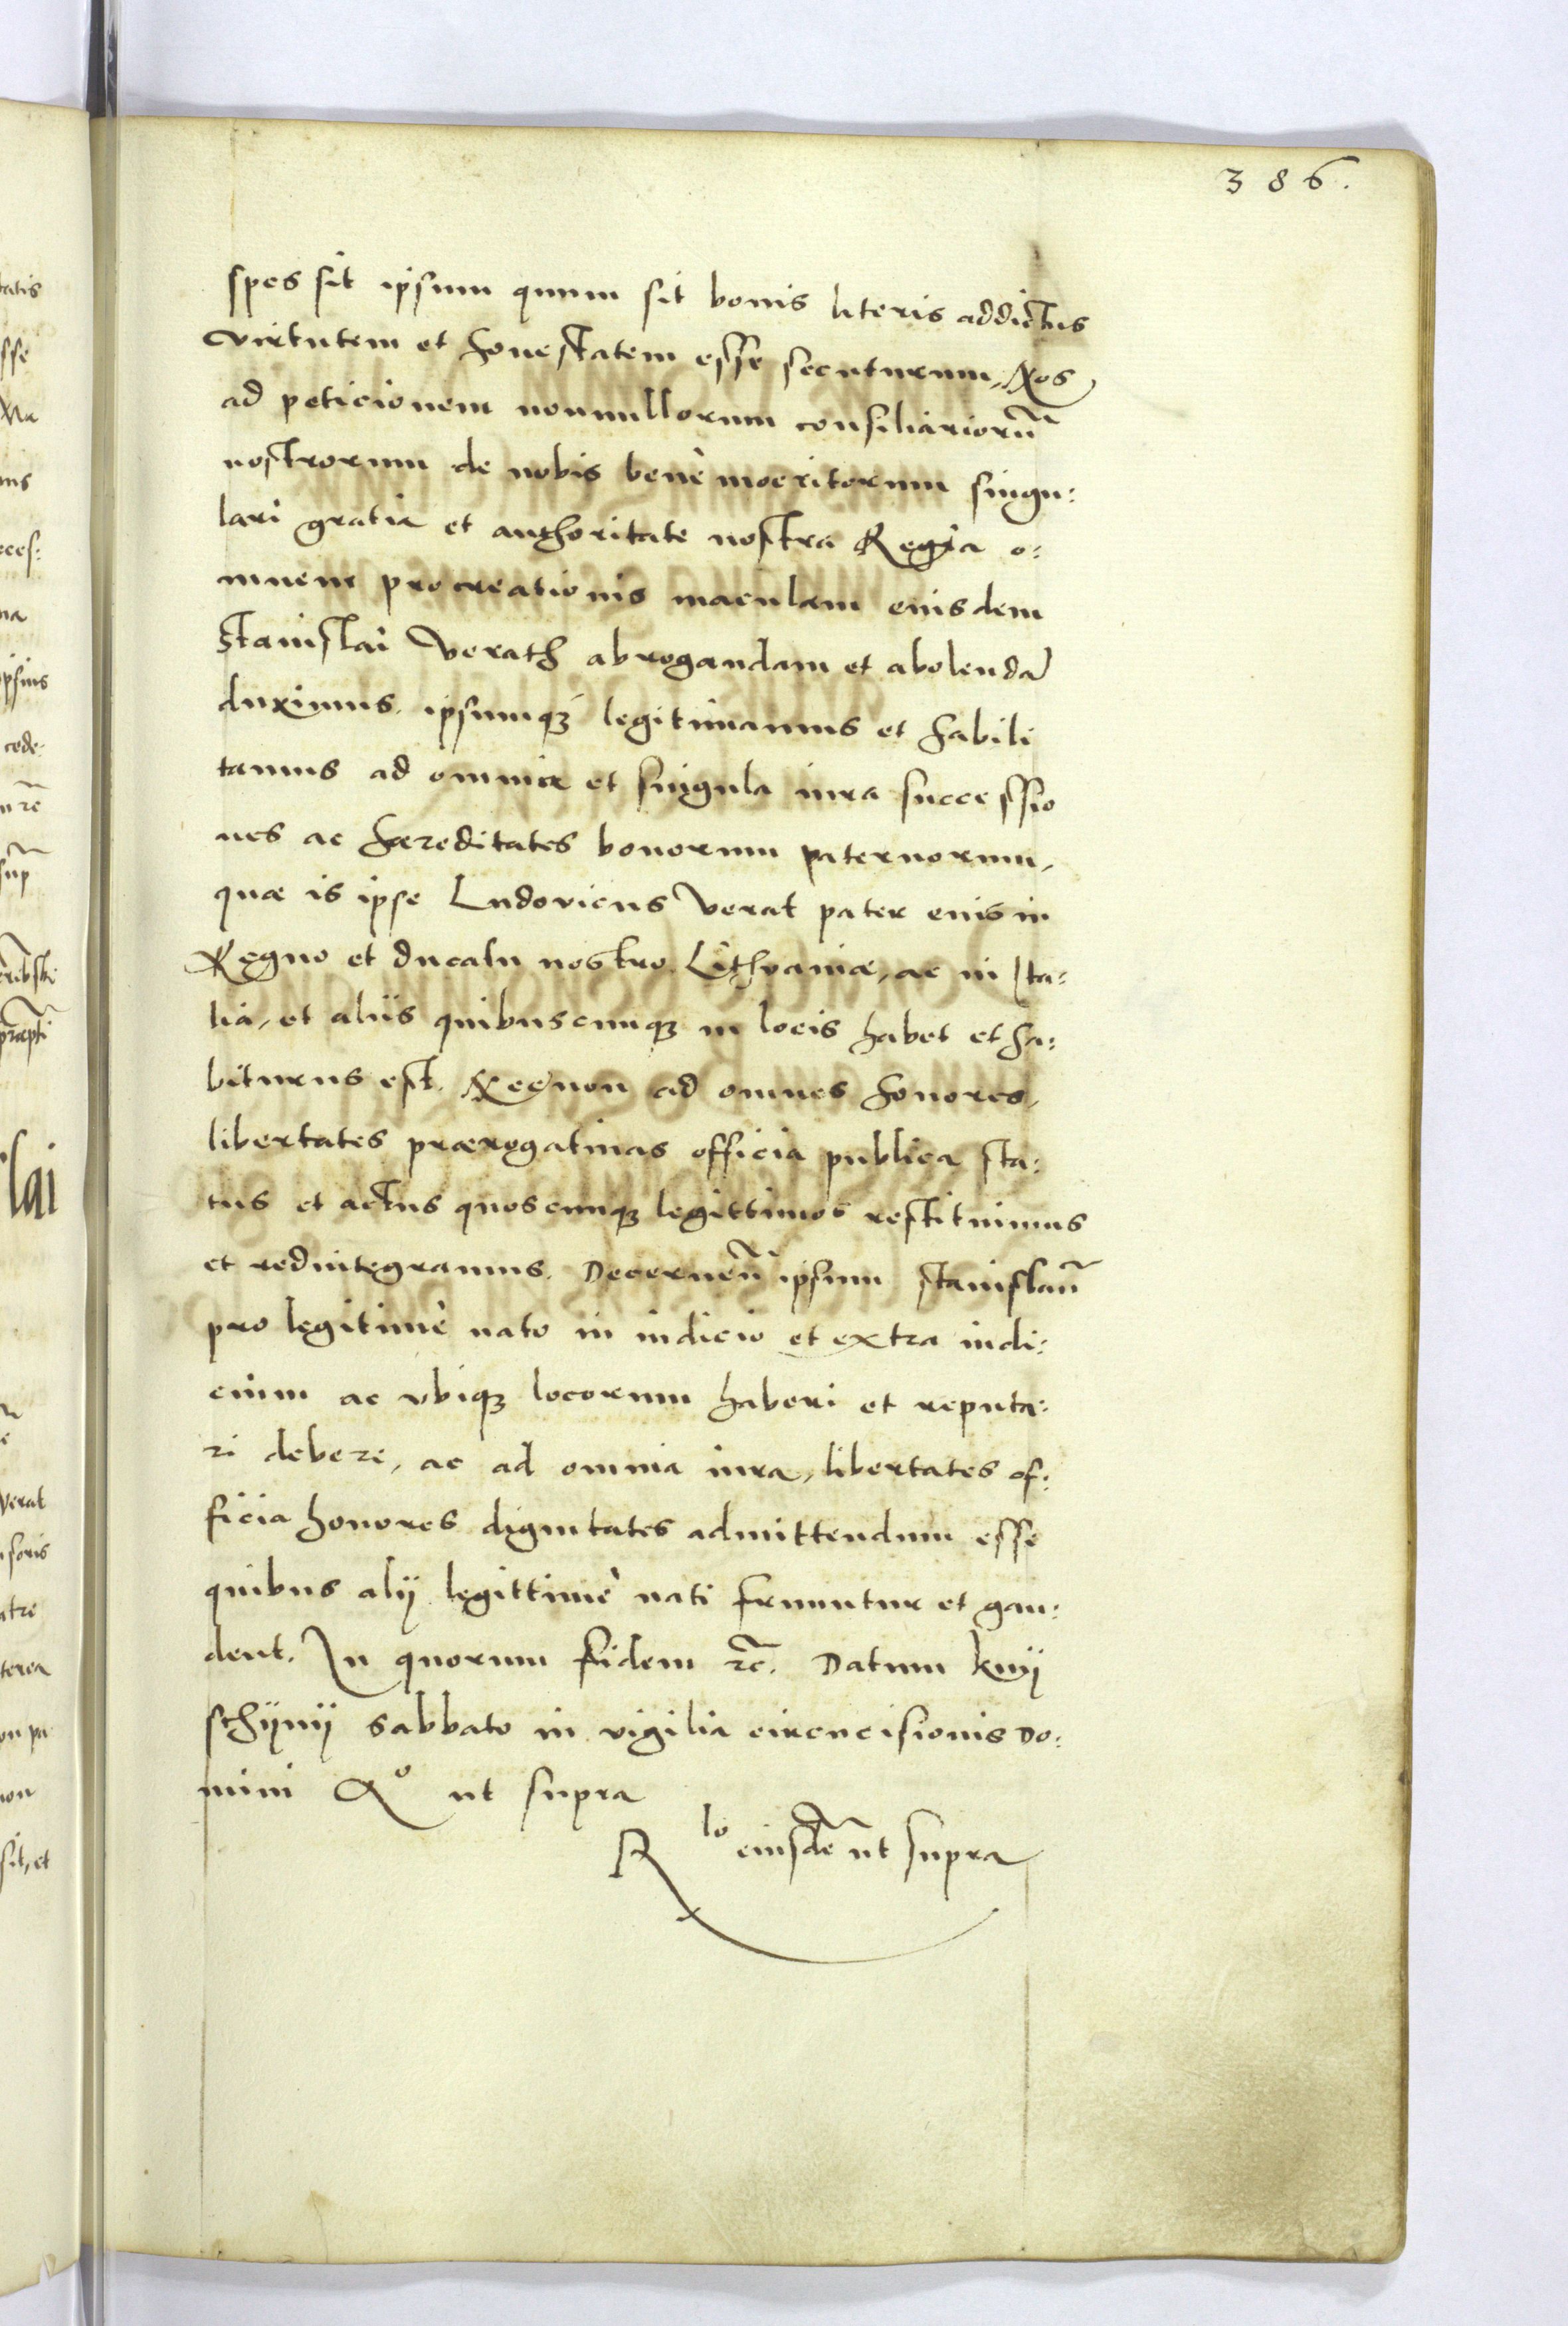 386.
spes sit ipsum quum sit bonis literis addictus
virtutem et honestatem esse secuturum, Nos
ad peticionem nonnullorum consiliariorũ
nostrorum de nobis benè moeritorum singu:
lari gratia et authoritate nostra Regia o:
mnem procreationis maculam eiusdem
Stanislai Verath abrogandam et abolendã
duximus. ipsumqꝫ legitimamus et habili
tamus ad omnia et singula iura successio
nes ac haereditates bonorum paternorum,
quae is ipse Ludovicus Verat pater eius in
Regno et ducatu nostro Lithvaniae, ac in Ita:
lia, et aliis quibuscunqꝫ in locis habet et ha:
biturus est. Necnon ad omnes honores,
libertates praerogatiuas officia publica sta:
tus et actus quoscunqꝫ legittimos restituimus
et redintegramus. Decernen̄ ipsum Stanislaũ
pro legitimè nato in iudicio et extra iudi:
cium ac vbiqꝫ locorum haberi et reputa:
ri debere, ac ad omnia iura, libertates of:
ficia honores dignitates admittendum esse
quibus alij legittimè nati fruuntur et gau:
dent. In quorum fidem ꝛc̃. Datum knij
schijnij sabbato in vigilia circuncisionis Do:
mini Aº ut supra
R lo eiusdẽ ut supra